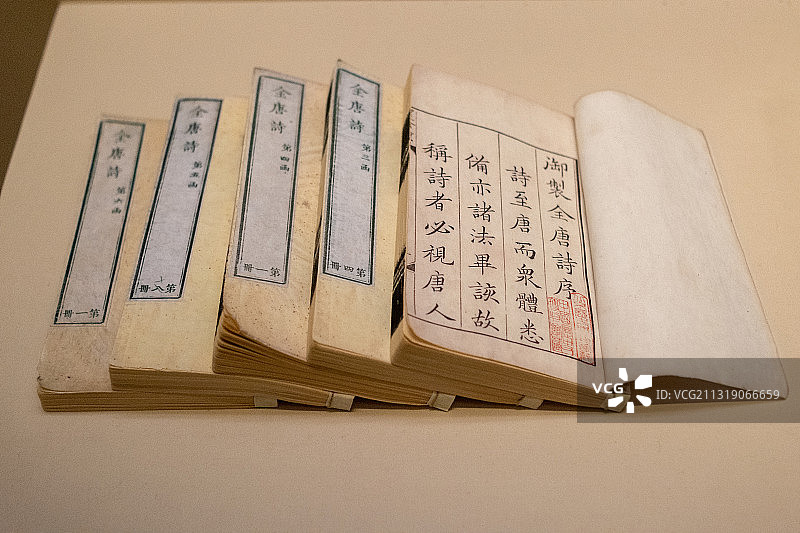 御製全唐詩序
詩至唐而衆體悉
備亦諸法畢該故
稱詩者必視唐人
全唐詩
第三函
第四冊
全唐詩
第四函
第一冊
全唐詩
第五函
第八冊
全唐詩
第六函
第一冊
VCG
ID: VCG211319066659
vcg.com